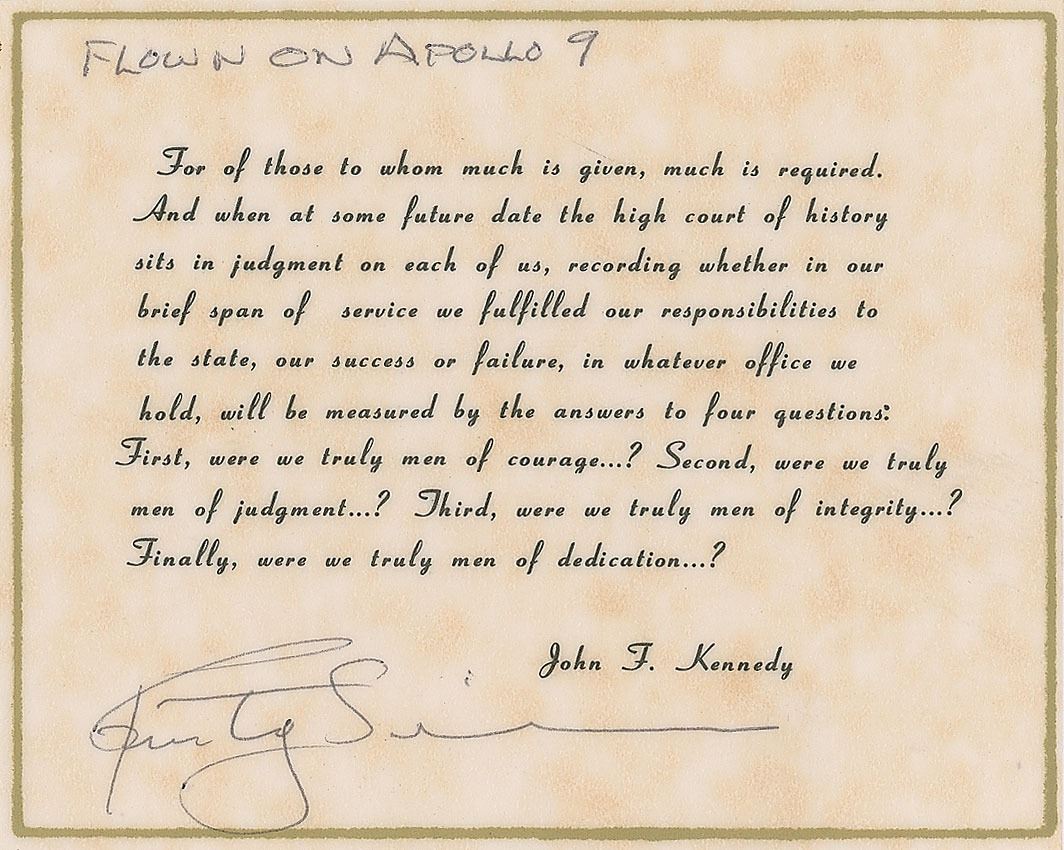 FLOWN ON APOLLO 9
For of those to whom much is given, much is required.
And when at some future date the high court of history
sits in judgment on each of us, recording whether in our
brief span of service we fulfilled our responsibilities to
the state, our success or failure, in whatever office we
hold, will be measured by the answers to four questions:
First, were we truly men of courage...? Second, were we truly
men of judgment...? Third, were we truly men of integrity...?
Finally, were we truly men of dedication...?
John F. Kennedy